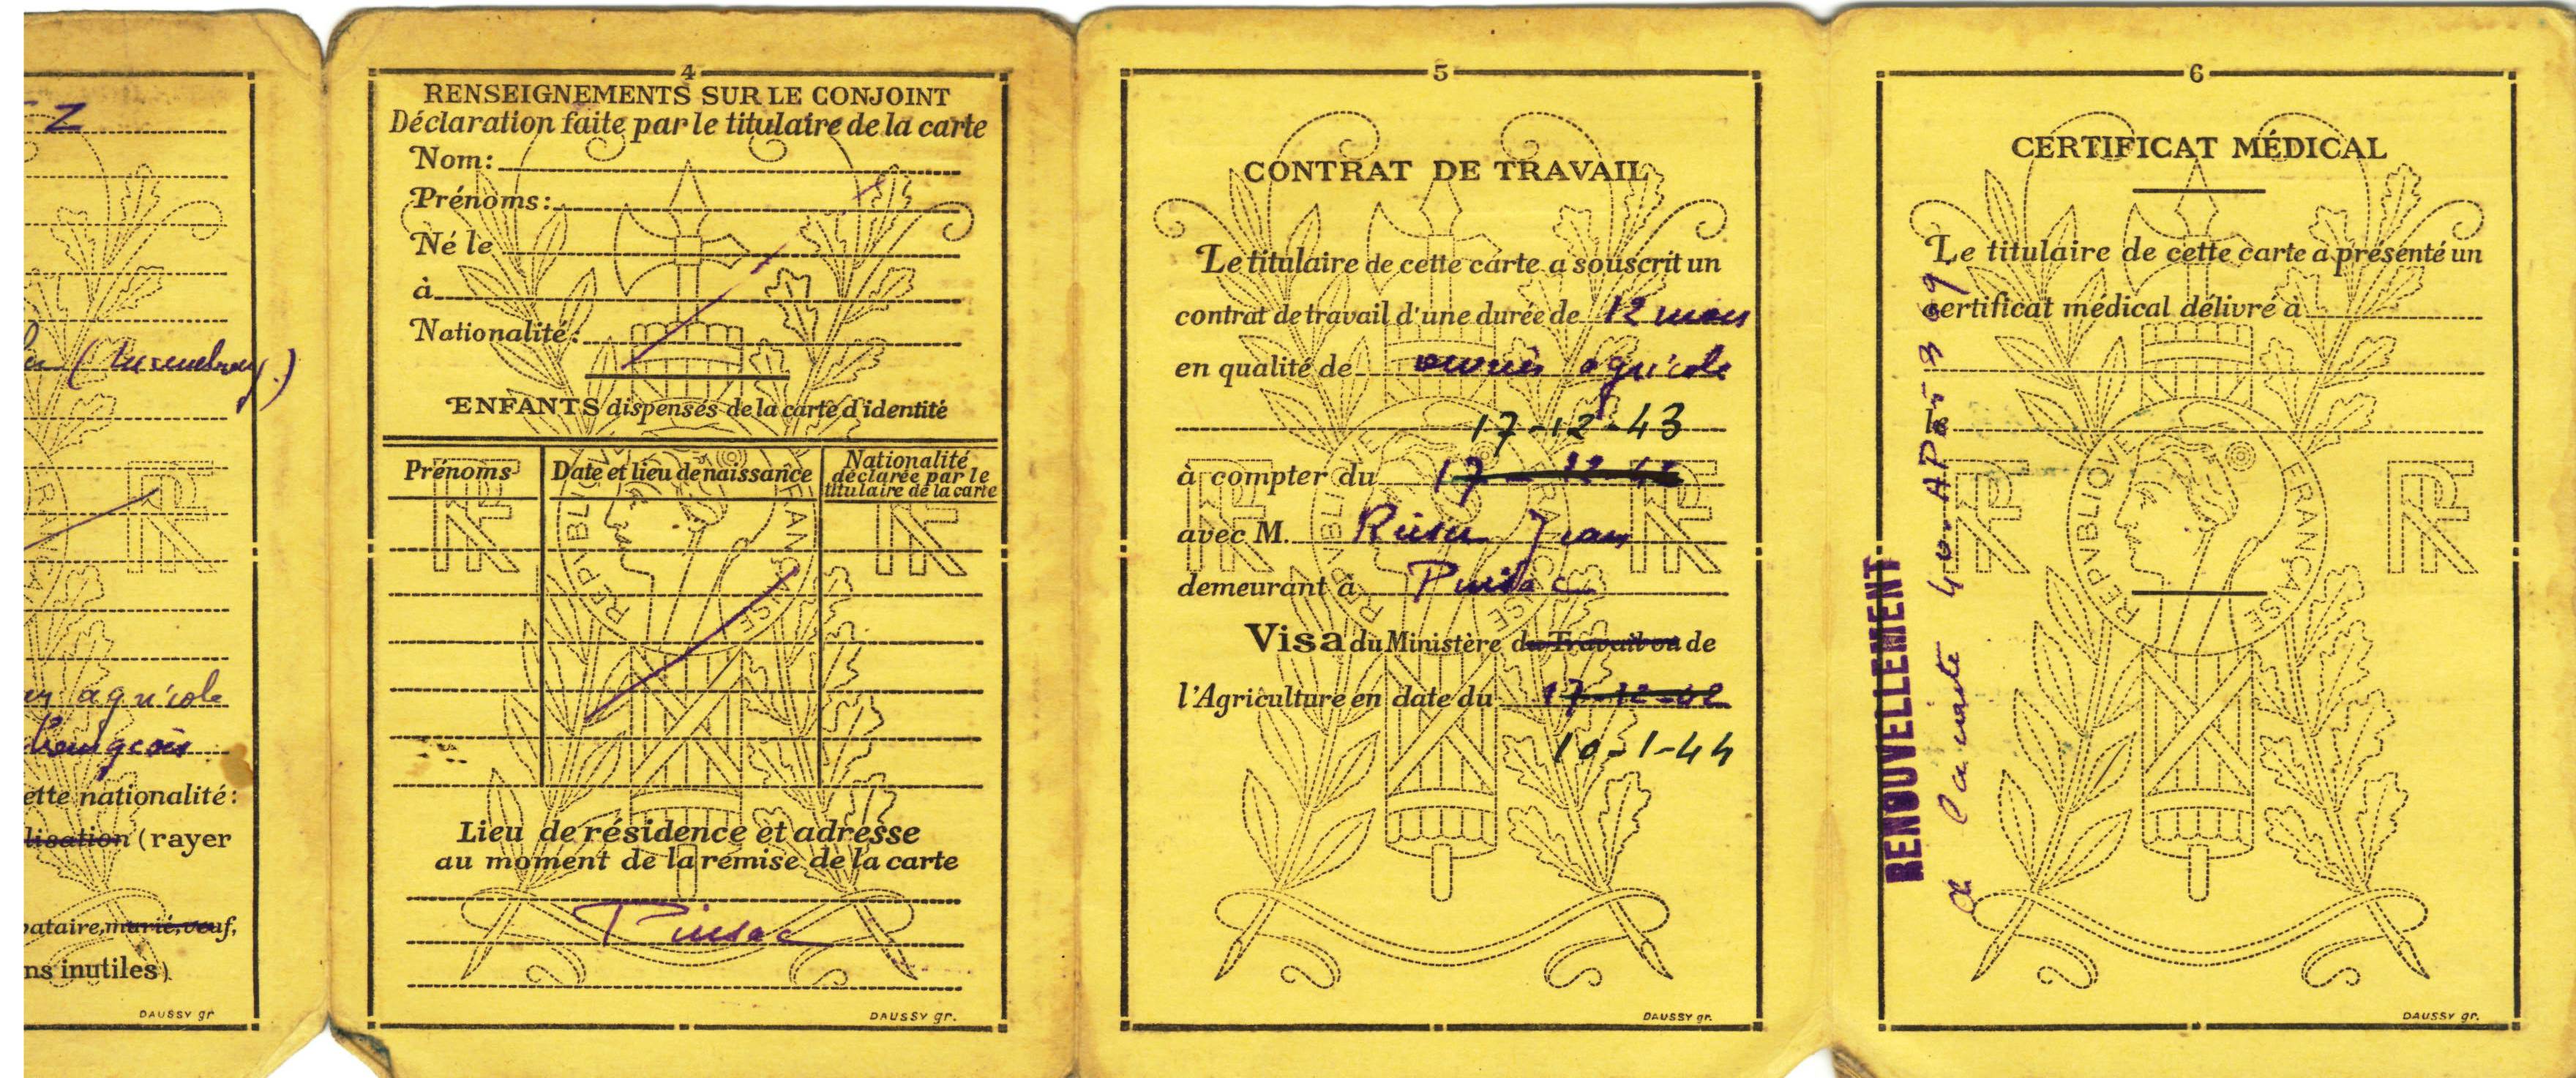 Z
(Luxembourg.)
agricole
ette nationalité:
lisation (rayer
bataire, marié, veuf,
ns inutiles)
DAUSSY gr
4
RENSEIGNEMENTS SUR LE CONJOINT
Déclaration faite par le titulaire de la carte
Nom:
Prénoms:
Né le
à
Nationalité:
ENFANTS dispensés de la carte d'identité
Prénoms
Date et lieu de naissance
Nationalité
déclarée par le
titulaire de la carte
RF
RF
REPVBLIQVE FRANÇAISE
Lieu de résidence et adresse
au moment de la remise de la carte
Pinsac
DAUSSY gr.
5
CONTRAT DE TRAVAIL
Le titulaire de cette carte a souscrit un
contrat de travail d'une durée de 12 mois
en qualité de ouvrier agricole
17-12-43
à compter du 17-12-42
avec M. Jean
demeurant à Pinsac
Visa du Ministère du Travail ou de
l'Agriculture en date du 17-12-42
10-1-44
RF
RF
REPVBLIQVE FRANÇAISE
DAUSSY gr.
6
CERTIFICAT MÉDICAL
Le titulaire de cette carte a présenté un
certificat médical délivré à
RF
RF
REPVBLIQVE FRANÇAISE
RENOUVELLEMENT
DAUSSY gr.